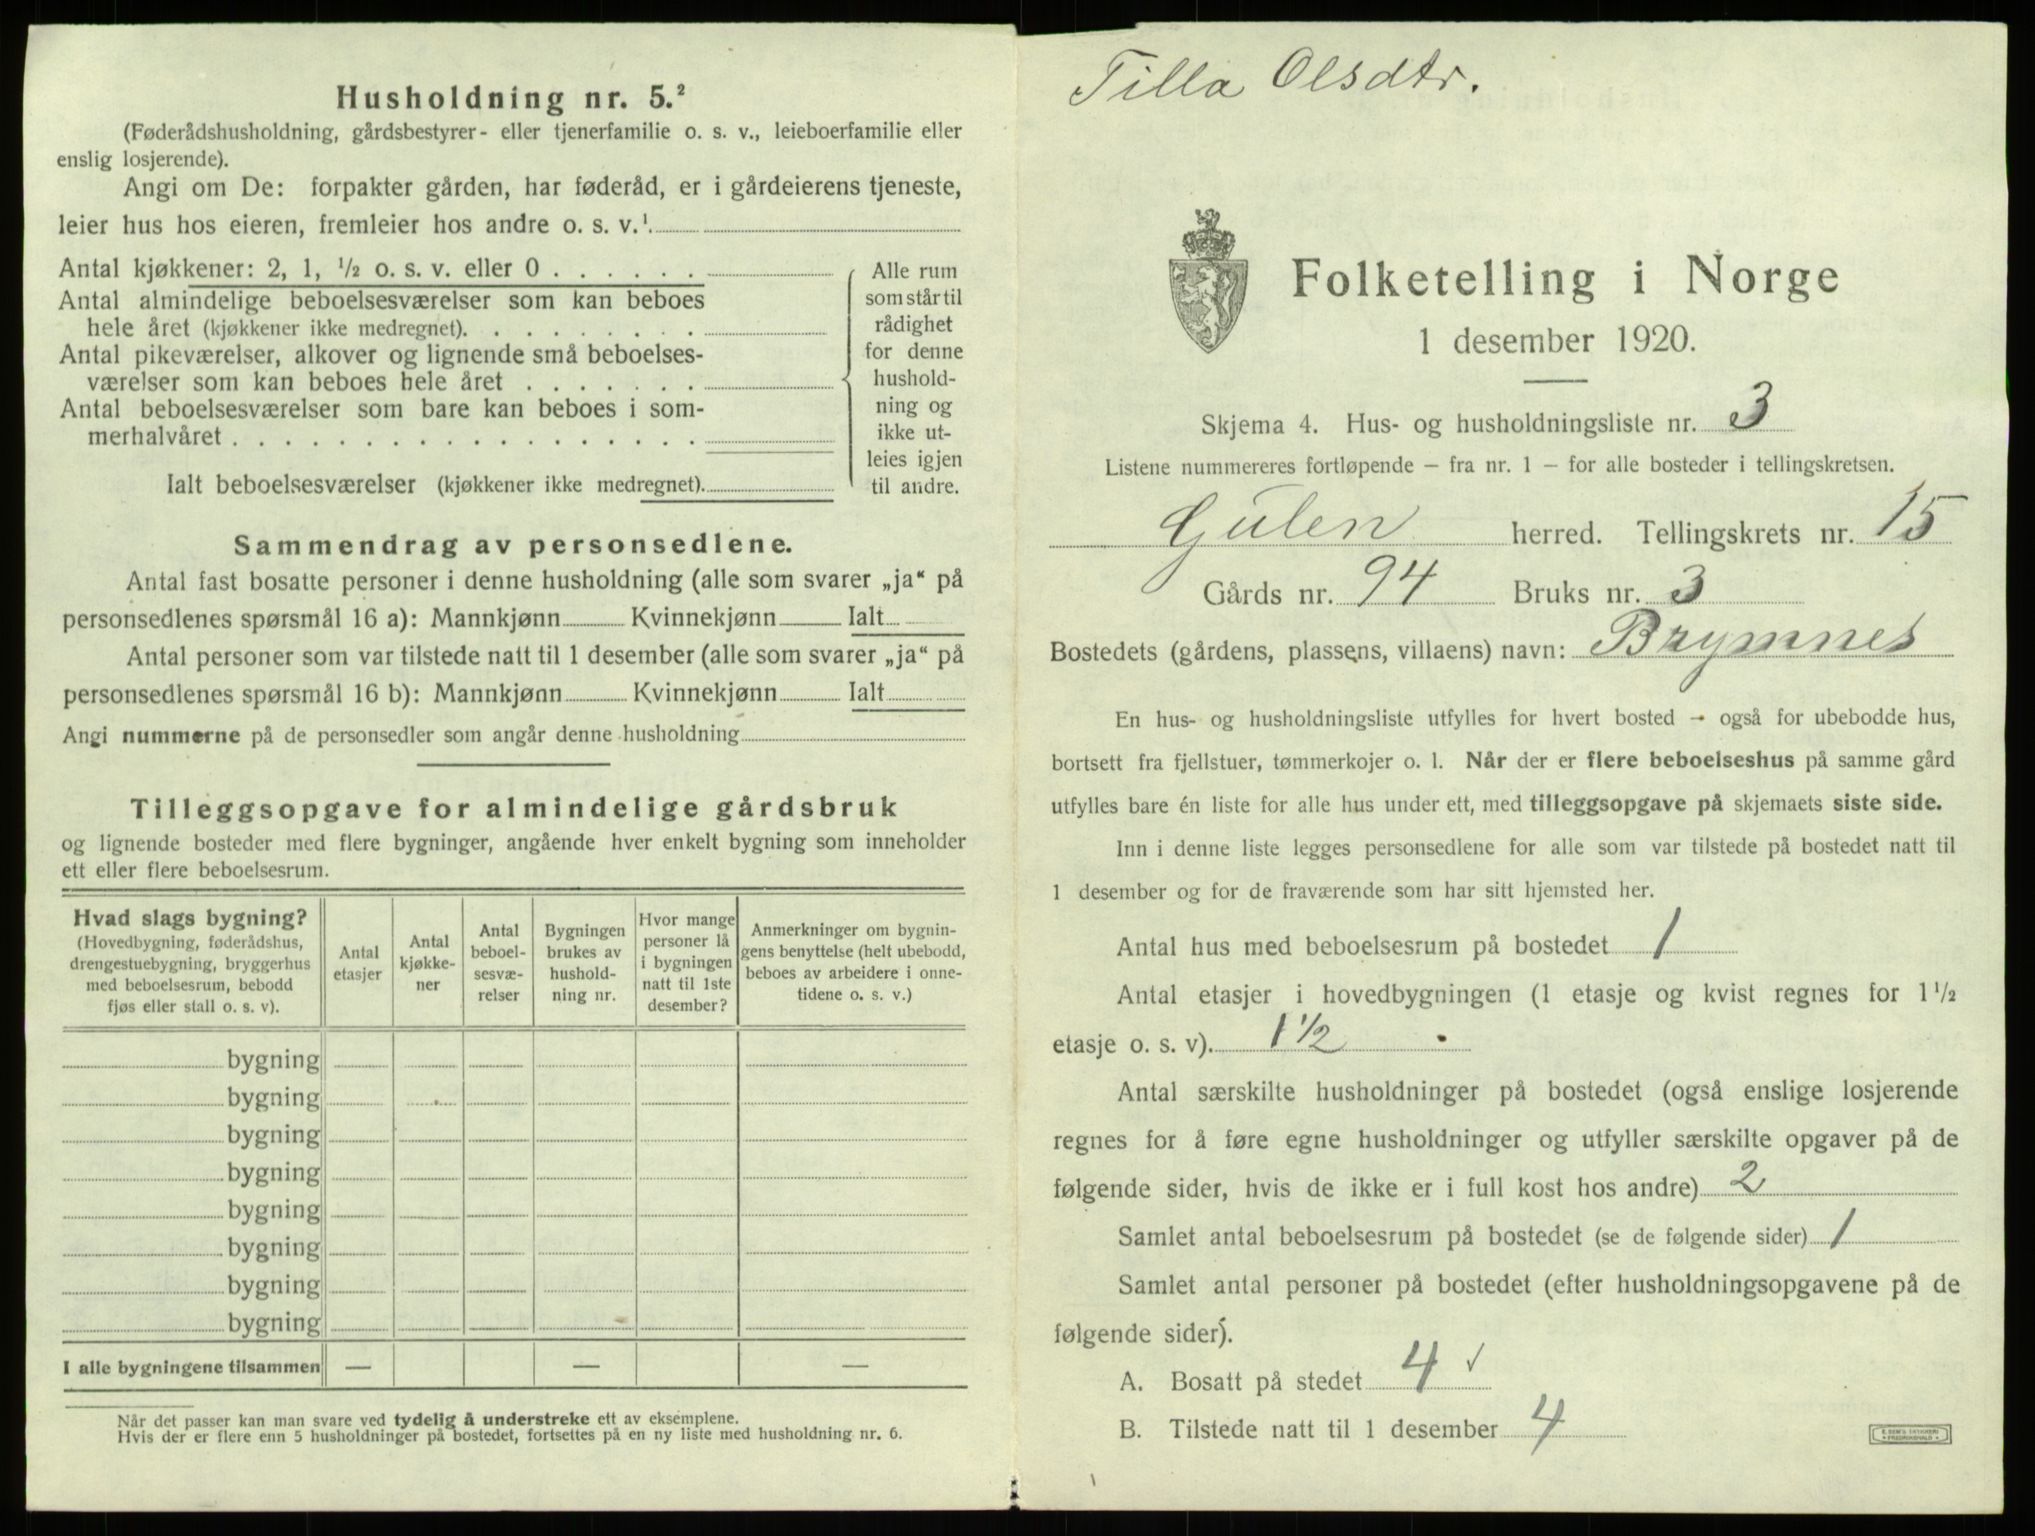 Husholdning nr. 5.²
(Føderådshusholdning, gårdsbestyrer- eller tjenerfamilie o. s. v., leieboerfamilie eller
enslig losjerende).
Angi om De: forpakter gården, har føderåd, er i gårdeierens tjeneste,
leier hus hos eieren, fremleier hos andre o. s. v.¹
Antal kjøkkener: 2, 1, ½ o. s. v. eller 0 . . . . . .
Antal almindelige beboelsesværelser som kan beboes
hele året (kjøkkener ikke medregnet). . . . . . . . .
Antal pikeværelser, alkover og lignende små beboelses-
værelser som kan beboes hele året . . . . . . .
Antal beboelsesværelser som bare kan beboes i som-
merhalvåret . . . . . . . . . . . . . . . . . .
Ialt beboelsesværelser (kjøkkener ikke medregnet).
Alle rum
som står til
rådighet
for denne
hushold-
ning og
ikke ut-
leies igjen
til andre.
Sammendrag av personsedlene.
Antal fast bosatte personer i denne husholdning (alle som svarer „ja“ på
personsedlenes spørsmål 16 a): Mannkjønn Kvinnekjønn Ialt
Antal personer som var tilstede natt til 1 desember (alle som svarer „ja“ på
personsedlenes spørsmål 16 b): Mannkjønn Kvinnekjønn Ialt
Angi nummerne på de personsedler som angår denne husholdning
Tilleggsopgave for almindelige gårdsbruk
og lignende bosteder med flere bygninger, angående hver enkelt bygning som inneholder
ett eller flere beboelsesrum.
Hvad slags bygning?
(Hovedbygning, føderådshus,
drengestuebygning, bryggerhus
med beboelsesrum, bebodd
fjøs eller stall o. s. v).
Antal
etasjer
Antal
kjøkke-
ner
Antal
beboel-
sesvæ-
relser
Bygningen
brukes av
hushold-
ning nr.
Hvor mange
personer lå
i bygningen
natt til 1ste
desember?
Anmerkninger om bygnin-
gens benyttelse (helt ubebodd,
beboes av arbeidere i onne-
tidene o. s. v.)
bygning
bygning
bygning
bygning
bygning
bygning
bygning
bygning
I alle bygningene tilsammen — — —
Når det passer kan man svare ved tydelig å understreke ett av eksemplene.
Hvis der er flere enn 5 husholdninger på bostedet, fortsettes på en ny liste med husholdning nr. 6.
Tilla Olsdtr.
Folketelling i Norge
1 desember 1920.
Skjema 4. Hus- og husholdningsliste nr. 3
Listene nummereres fortløpende – fra nr. 1 – for alle bosteder i tellingskretsen.
Gulen herred. Tellingskrets nr. 15
Gårds nr. 94 Bruks nr. 3
Bostedets (gårdens, plassens, villaens) navn: Brymnes
En hus- og husholdningsliste utfylles for hvert bosted – også for ubebodde hus,
bortsett fra fjellstuer, tømmerkojer o. l. Når der er flere beboelseshus på samme gård
utfylles bare én liste for alle hus under ett, med tilleggsopgave på skjemaets siste side.
Inn i denne liste legges personsedlene for alle som var tilstede på bostedet natt til
1 desember og for de fraværende som har sitt hjemsted her.
Antal hus med beboelsesrum på bostedet 1
Antal etasjer i hovedbygningen (1 etasje og kvist regnes for 1½
etasje o. s. v). 1½
Antal særskilte husholdninger på bostedet (også enslige losjerende
regnes for å føre egne husholdninger og utfyller særskilte opgaver på de
følgende sider, hvis de ikke er i full kost hos andre) 2
Samlet antal beboelsesrum på bostedet (se de følgende sider) 1
Samlet antal personer på bostedet (efter husholdningsopgavene på de
følgende sider).
A. Bosatt på stedet 4 ✓
B. Tilstede natt til 1 desember 4